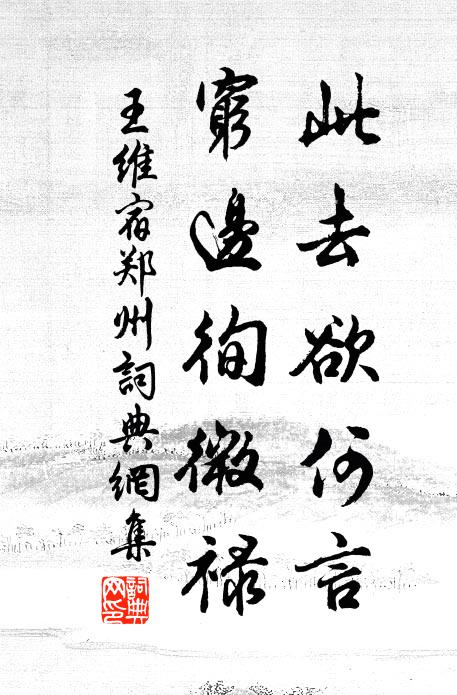 此去欲何言
窮邊徇微禄
王維宿郑州詞典網集
詞典